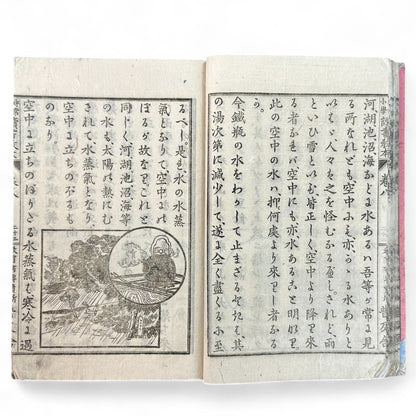 河湖池沼海などに水あるハ吾等が常に見
る所なれども、空中にも亦水ありと
いはゞ人々之を怪むなるべしされど、雨
といひ雪といふ者皆正しく空中より降り來
る者なれバ空中にも亦水あること明けし
此の空中の水ハ抑何處より來りし者なる
か。
今鐵瓶の水をわかして止まざるときハ其
の湯次第に減少して遂に全く盡くるに至
るべし是れ水の水蒸
氣となりて空中にの
ぼるが故なりこれと
同じく河湖池沼海等
の水も太陽の熱にむ
されて水蒸氣となり、
空中に立ちのぼるも
のなり
空中に立ちのぼりたる水蒸氣も寒冷に遇